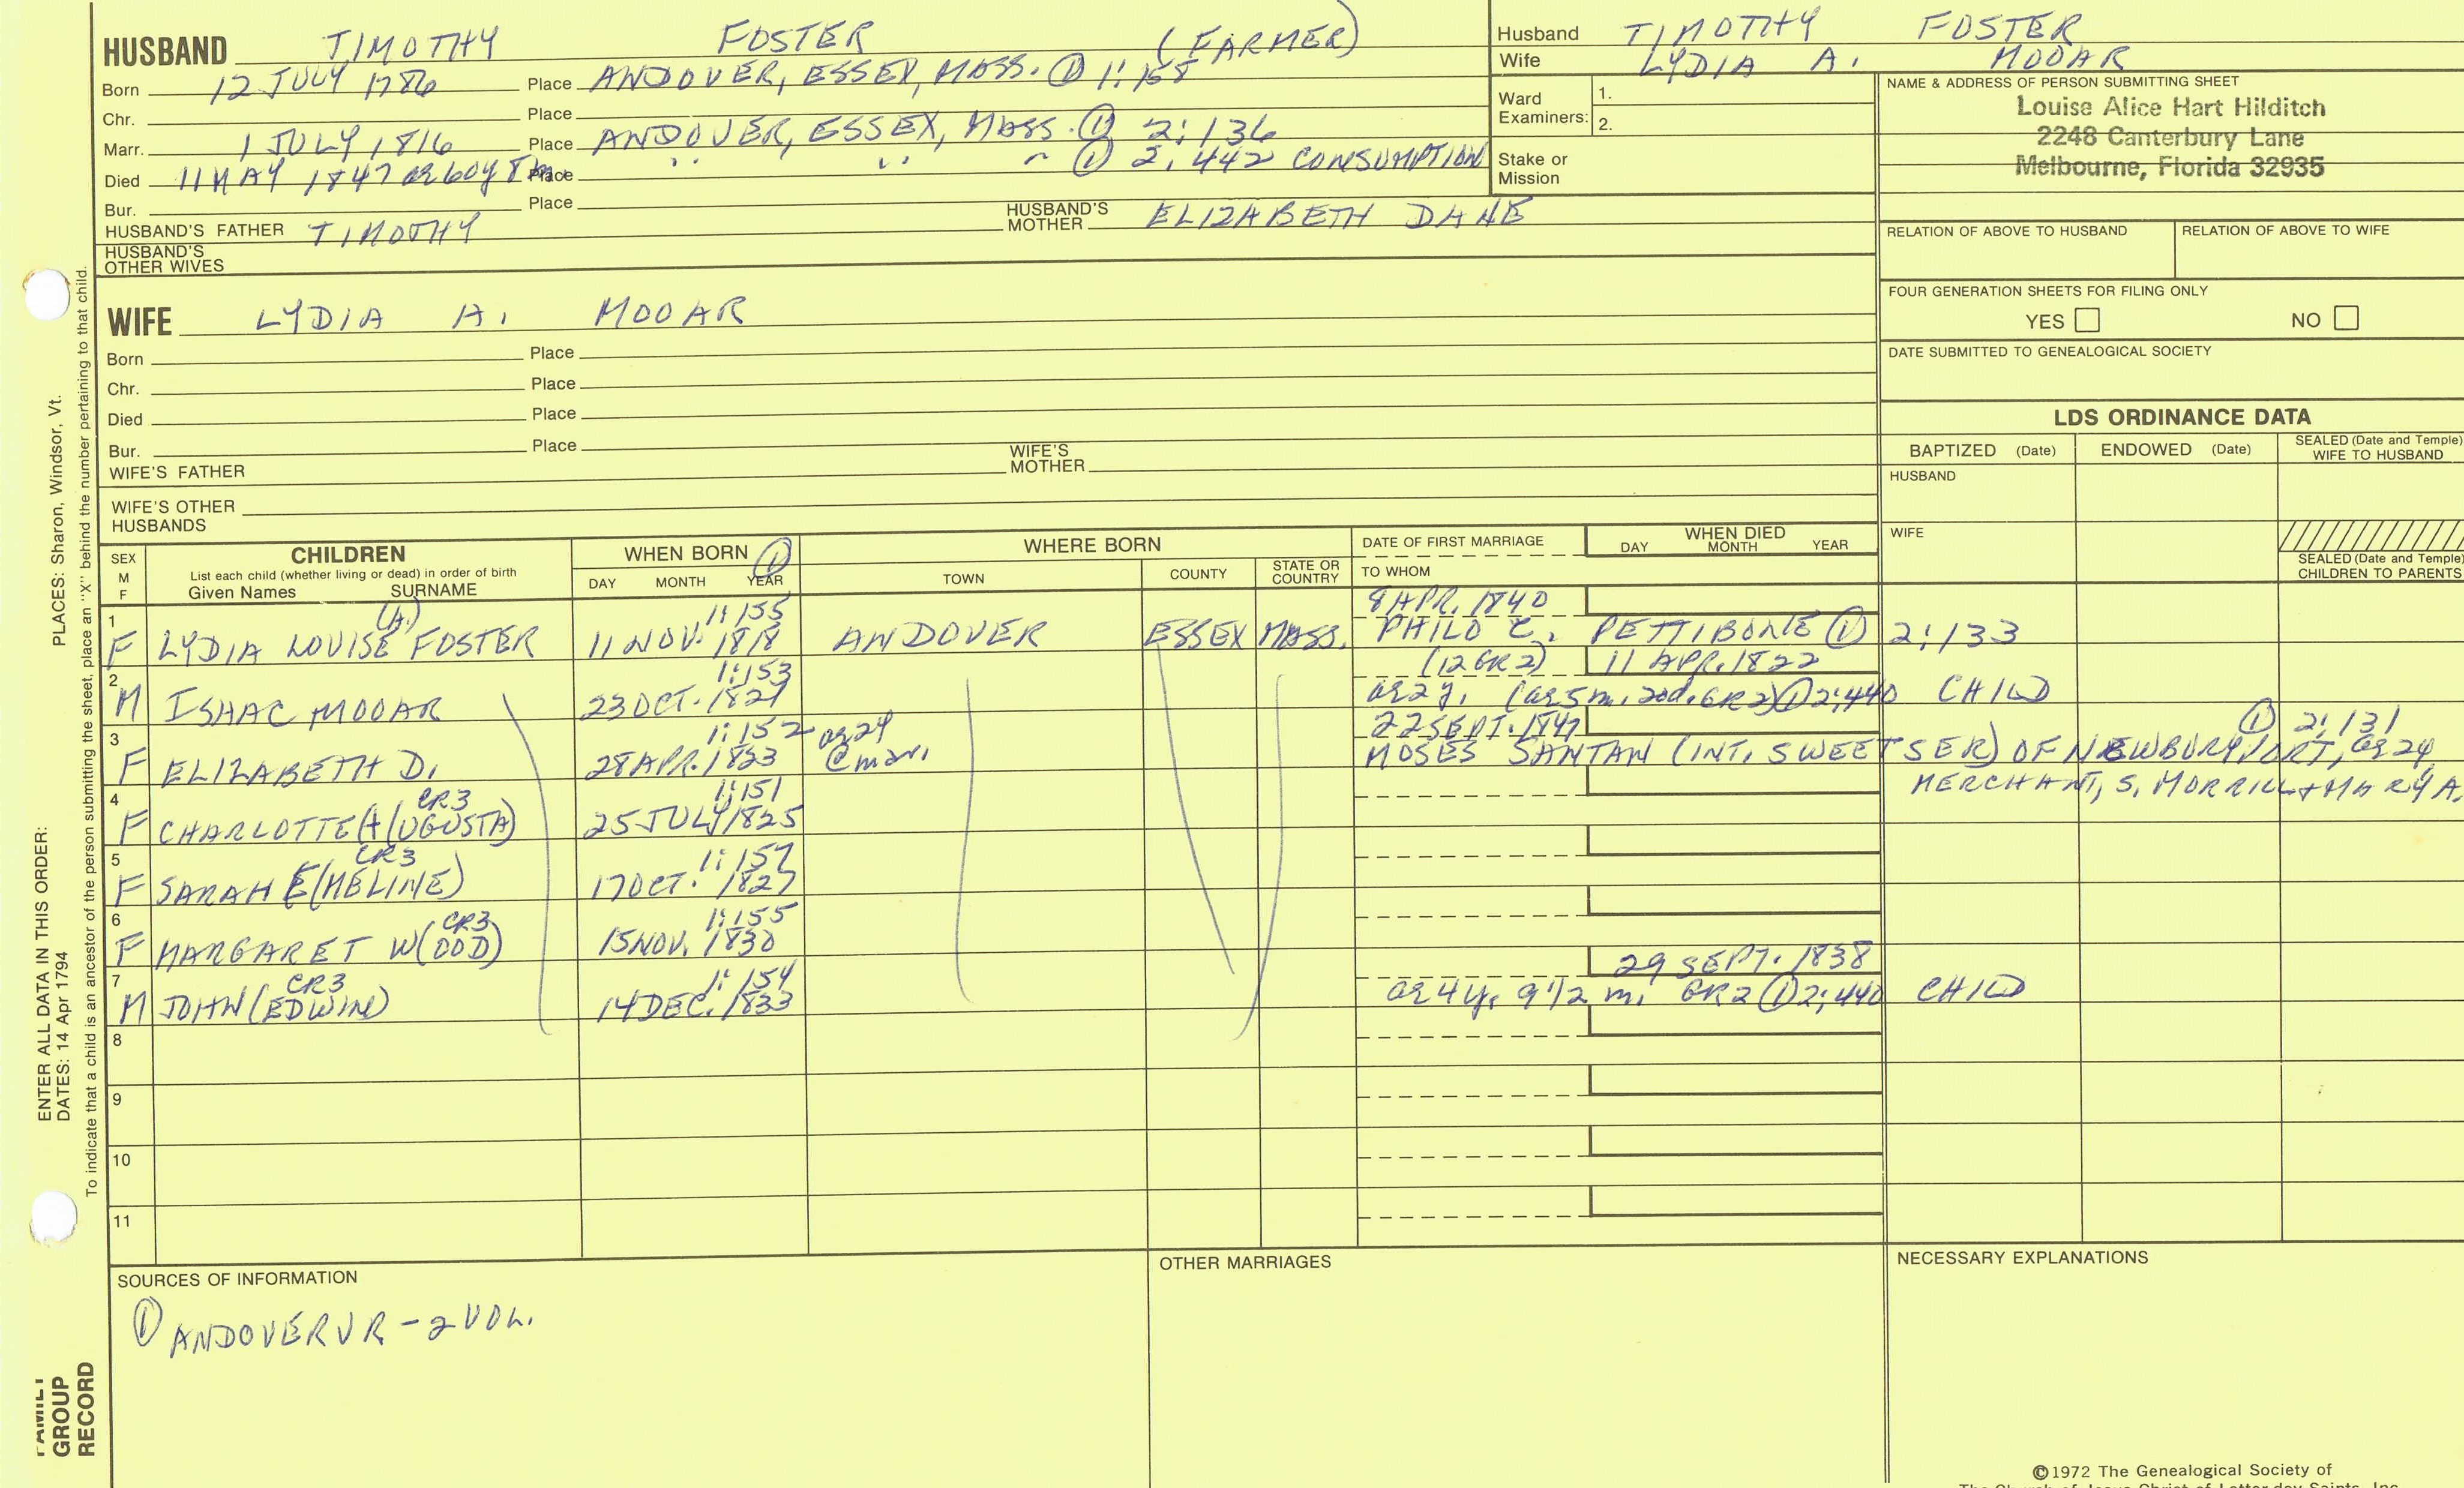 HUSBAND TIMOTHY FOSTER (FARMER)
Born 12 JULY 1786 Place ANDOVER, ESSEX, MASS. ① 1:158
Chr. Place
Marr. 1 JULY 1816 Place ANDOVER, ESSEX, MASS. ① 2:136
Died 11 MAY 1847 ae 60y 8m. Place " " " ① 2:442 CONSUMPTION
Bur. Place
HUSBAND'S FATHER TIMOTHY HUSBAND'S MOTHER ELIZABETH DANE
HUSBAND'S OTHER WIVES
Husband TIMOTHY FOSTER
Wife LYDIA A. MOOAR
Ward Examiners: 1.
2.
Stake or Mission
NAME & ADDRESS OF PERSON SUBMITTING SHEET
Louise Alice Hart Hilditch
2248 Canterbury Lane
Melbourne, Florida 32935
RELATION OF ABOVE TO HUSBAND RELATION OF ABOVE TO WIFE
FOUR GENERATION SHEETS FOR FILING ONLY
YES NO
DATE SUBMITTED TO GENEALOGICAL SOCIETY
WIFE LYDIA A. MOOAR
Born Place
Chr. Place
Died Place
Bur. Place
WIFE'S FATHER WIFE'S MOTHER
WIFE'S OTHER HUSBANDS
LDS ORDINANCE DATA
BAPTIZED (Date) ENDOWED (Date) SEALED (Date and Temple) WIFE TO HUSBAND
HUSBAND
WIFE
SEALED (Date and Temple) CHILDREN TO PARENTS
SEX M F CHILDREN WHEN BORN ① WHERE BORN DATE OF FIRST MARRIAGE WHEN DIED
List each child (whether living or dead) in order of birth
Given Names SURNAME DAY MONTH YEAR TOWN COUNTY STATE OR COUNTRY TO WHOM DAY MONTH YEAR
(A.) 1:155 8 APR. 1840
1 F LYDIA LOUISE FOSTER 11 NOV. 1818 ANDOVER ESSEX MASS. PHILO C. PETTIBONE ① 2:133
1:153 (12 GR2) 11 APR. 1822
2 M ISAAC MOOAR 23 OCT. 1821 ae 2y. (ae 5 m. 20d. GR2) ① 2:440 CHILD
1:152 ae 24 22 SEPT. 1847 ① 2:131
3 F ELIZABETH D. 28 APR. 1823 @ mar. MOSES SANTAN (INT. SWEETSER) OF NEWBURYPORT, ae 24,
MERCHANT, S. MORRILL + MARY A.
CR3 1:151
4 F CHARLOTTE A(UGUSTA) 25 JULY 1825
CR3 1:157
5 F SARAH E(MELINE) 17 OCT. 1827
CR3 1:155
6 F MARGARET W(OOD) 15 NOV. 1830
CR3 1:154 29 SEPT. 1838
7 M JOHN (EDWIN) 14 DEC. 1833 ae 4y. 9 1/2 m. GR2 ① 2:440 CHILD
8
9
10
11
SOURCES OF INFORMATION
① ANDOVER VR - 2 VOL.
OTHER MARRIAGES
NECESSARY EXPLANATIONS
©1972 The Genealogical Society of
ENTER ALL DATA IN THIS ORDER:
DATES: 14 Apr 1794
PLACES: Sharon, Windsor, Vt.
To indicate that a child is an ancestor of the person submitting the sheet, place an "X" behind the number pertaining to that child.
FAMILY
GROUP
RECORD